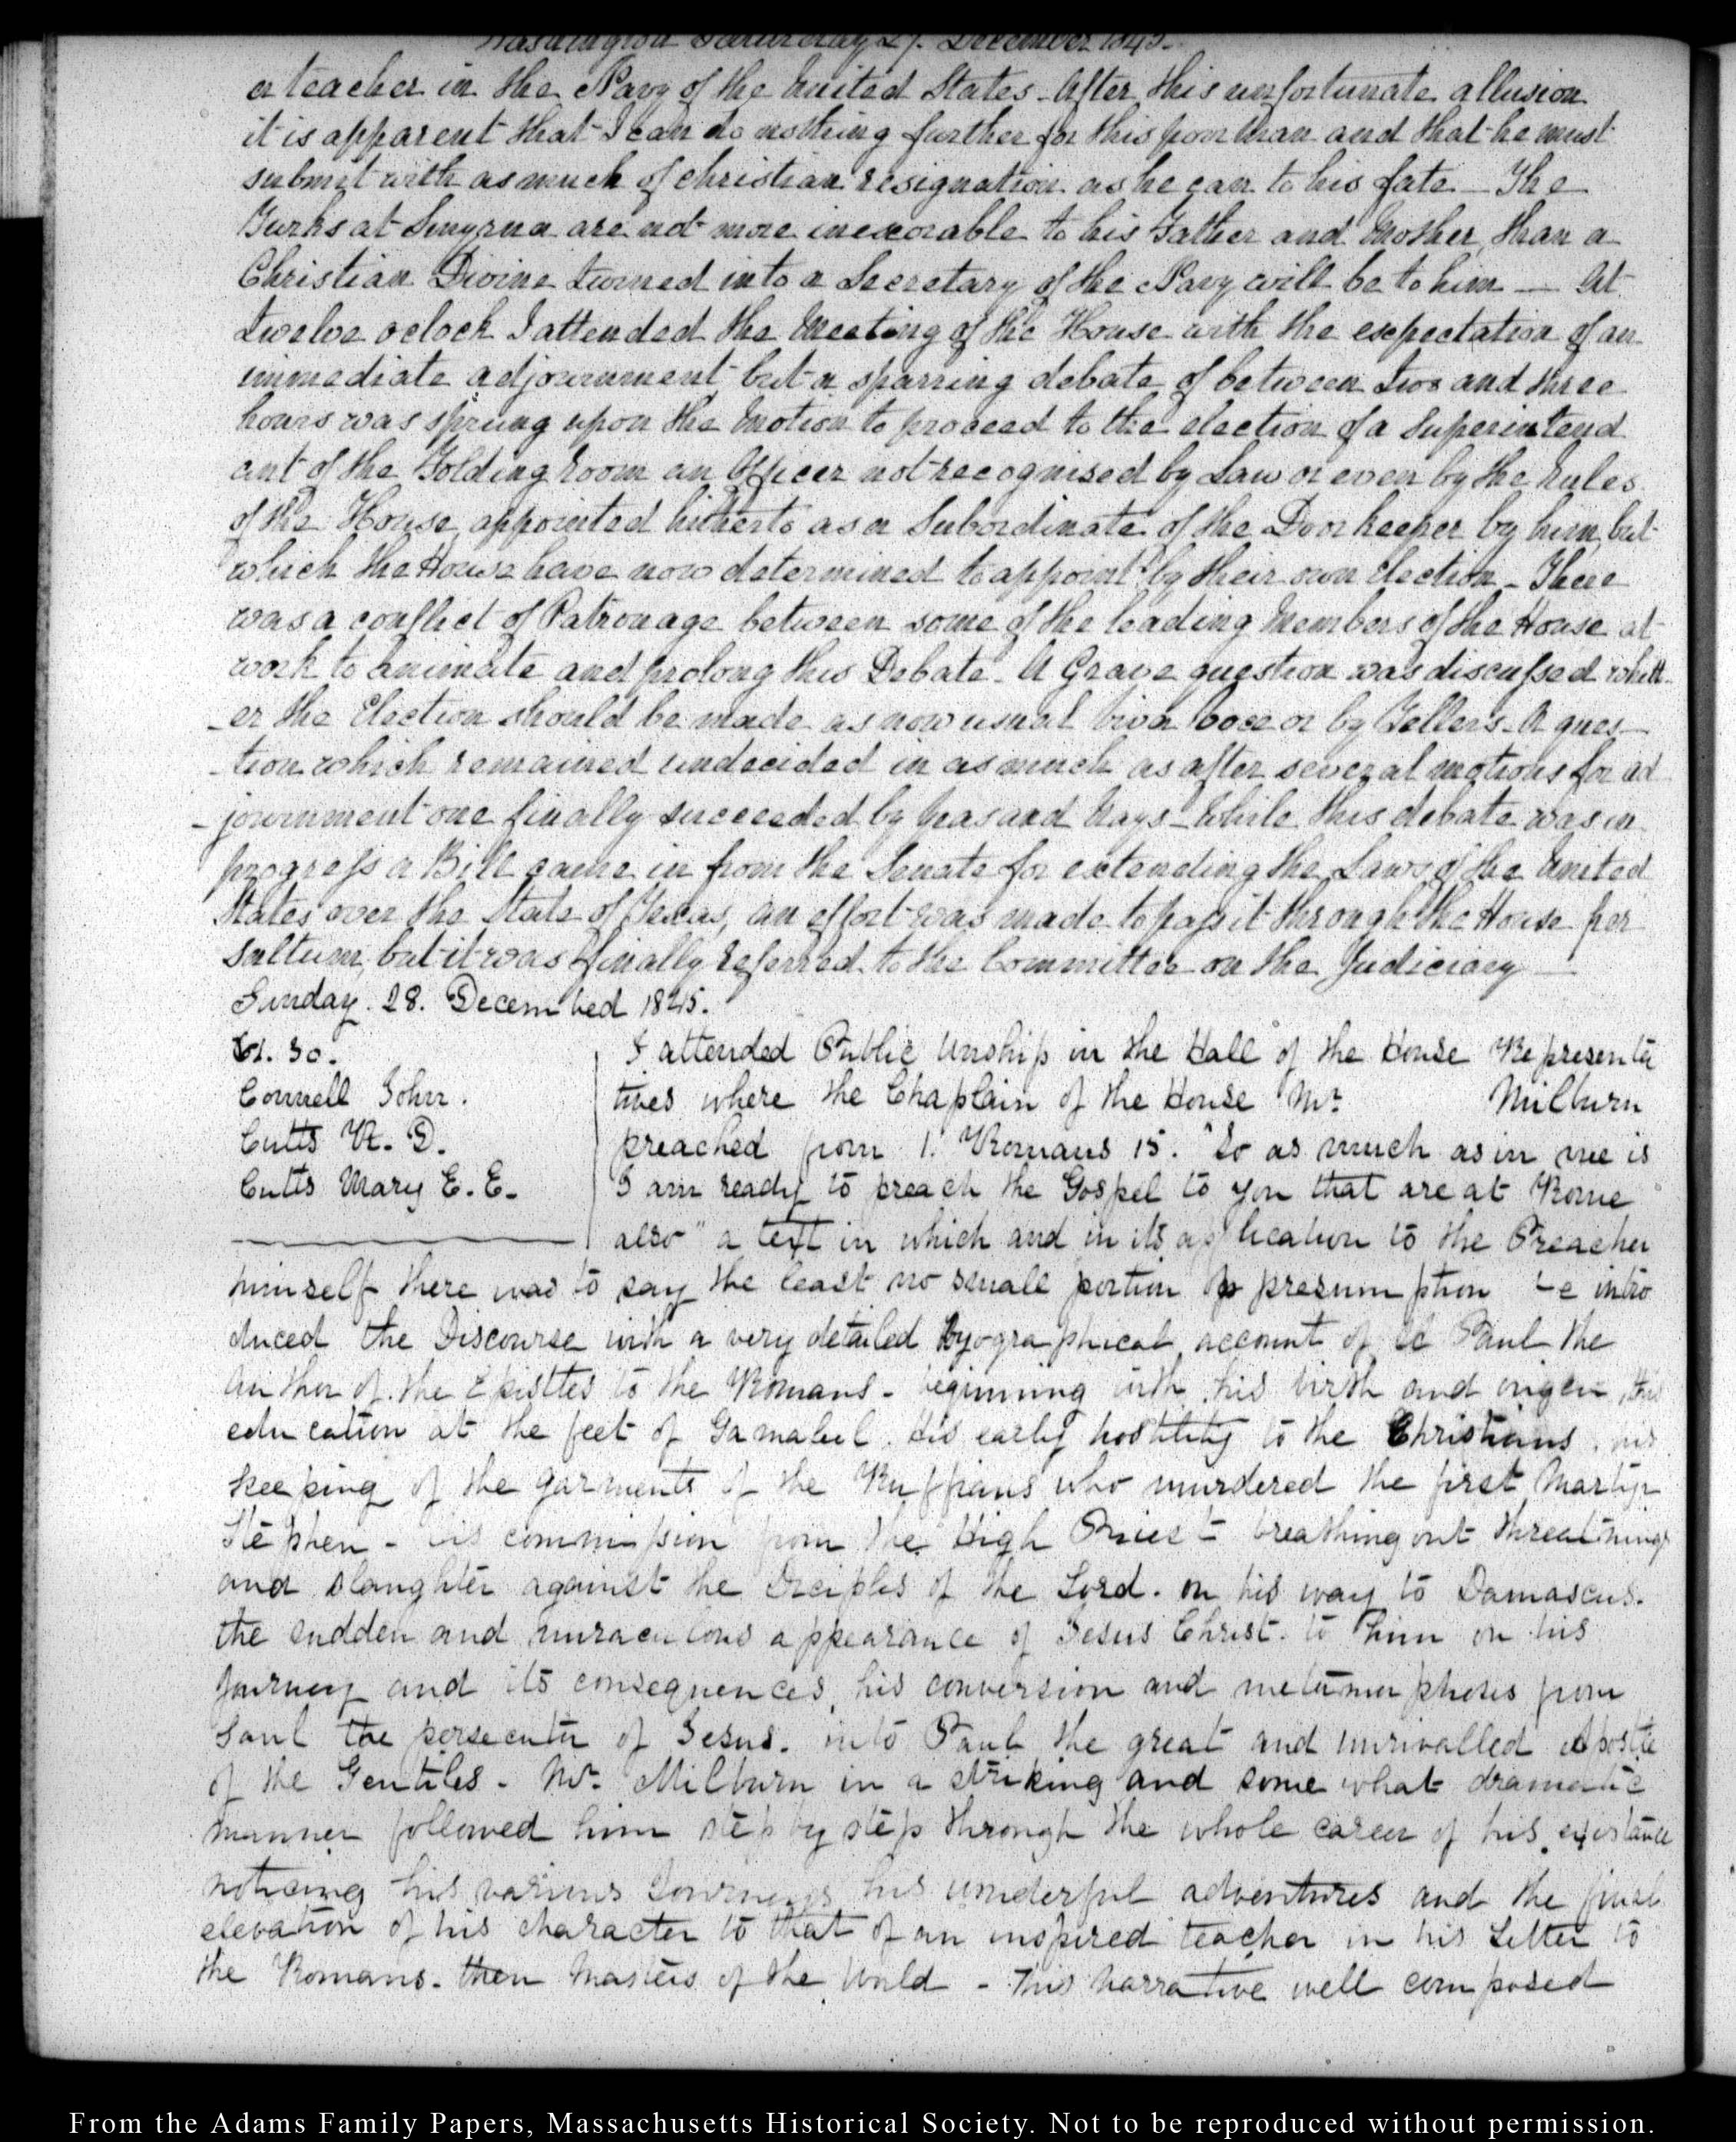 Washington Saturday 27. December 1845.
a teacher in the Navy of the United States - After this unfortunate allusion
it is apparent that I can do nothing further for this poor man and that he must
submit with as much of christian resignation as he can to his fate - The
Turks at Smyrna are not more inexorable to his Father and Mother, than a
Christian Divine turned into a Secretary of the Navy will be to him — At
twelve oclock I attended the Meeting of the House with the expectation of an
immediate adjournment but a sparring debate of between two and three
hours was sprung upon the Motion to proceed to the election of a Superintend
ant of the Folding room an Officer not recognised by Law or even by the Rules
of the House appointed hitherto as a Subordinate of the Doorkeeper by him, but
which the House have now determined to appoint by their own Election - There
was a conflict of Patronage between some of the leading Members of the House at
work to animate and prolong this Debate - A Grave question was discussed wheth-
-er the Election should be made as now usual viva voce or by Tellers - A ques-
-tion which remained undecided in as much as after several motions for ad
-journment one finally succeeded by Yeas and Nays - While this debate was in
progress a Bill came in from the Senate for extending the Laws of the United
States over the State of Texas, an effort was made to pass it through the House per
saltum, but it was finally referred to the Committee on the Judiciary —
Sunday. 28. December 1845.
30.
Connell John.
Cutts R. D.
Cutts Mary E. E.
I attended Public Worship in the Hall of the House Representa
tives where the Chaplain of the House Mr. Milburn
preached from 1. Romans 15. "So as much as in me is
I am ready to preach the Gospel to you that are at Rome
also" a text in which and in its application to the Preacher
himself there was to say the least no small portion of presumption he intro
duced the Discourse with a very detailed byographical account of St Paul the
Author of the Epistles to the Romans - beginning with his birth and origen, his
education at the feet of Gamaliel. His early hostility to the Christians, his
keeping of the garments of the Ruffians who murdered the first Martyr
Stephen - his commission from the High Priest - breathing out threatnings
and slaughter against the Disciples of the Lord. on his way to Damascus.
the sudden and miraculous appearance of Jesus Christ. to him on his
journey and its consequences, his conversion and metamorphosis from
Saul the persecutor of Jesus. into Paul the great and unrivalled Apostle
of the Gentiles - Mr. Milburn in a striking and some what dramatic
manner followed him step by step through the whole career of his existance
noticing his various Journeys his wonderful adventures and the final
elevation of his character to that of an inspired teacher in his Letter to
the Romans. then Masters of the World - This Narrative well composed
From the Adams Family Papers, Massachusetts Historical Society. Not to be reproduced without permission.